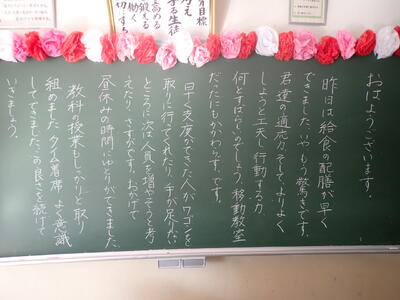 目標
考え
学ぶ生徒
高める
鍛える
働く
大切にする
おはようございます。
昨日は給食の配膳が早く
できました。いやもう驚きです。
君達の適応力、そしてよりよく
しようと工夫し行動する力、
何とすばらしいのでしょう。移動教室
だったにもかかわらず、です。
早く支度ができた人がワゴンを
取りに行ってくれたり、手が足りない
ところに次は人員を増やそうと考
えたり、さすがです。おかげで
昼休みの時間にゆとりができました。
教科の授業もしっかりと取り
組めました。タイム着席、よく意識
してできました。この良さを続けて
いきましょう。